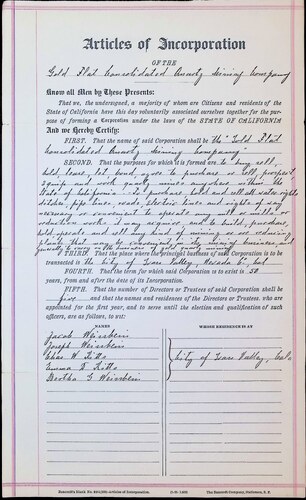 Articles of Incorporation
OF THE
Gold Flat Consolidated Quartz Mining Company
Know all Men by These Presents:
That we, the undersigned, a majority of whom are Citizens and residents of the
State of California have this day voluntarily associated ourselves together for the pur-
pose of forming a Corporation under the laws of the STATE OF CALIFORNIA
And we Hereby Certify:
FIRST. That the name of said Corporation shall be the "Gold Flat
Consolidated Quartz Mining Company
SECOND. That the purposes for which it is formed are to buy, sell,
hold, lease, let, bond, agree to purchase or sell, prospect,
equip and work quartz mines anywhere within the
State of California to purchase hold and sell all water rights
ditches, pipe lines, roads, electric lines and rights of way
necessary or convenient to operate any mill or smelter or
reduction works it may acquire and to build, purchase,
hold, operate and sell any kind of mining or ore reducing
plants that may be convenient in its mining business, and
generally to carry on the business of gold quartz mining
THIRD. That the place where the principal business of said Corporation is to be
transacted is the City of Grass Valley, Nevada Co. Cal.
FOURTH. That the term for which said Corporation is to exist is 50
years, from and after the date of its Incorporation.
FIFTH. That the number of Directors or Trustees of said Corporation shall be
five and that the names and residences of the Directors or Trustees, who are
appointed for the first year, and to serve until the election and qualification of such
officers, are as follows, to wit:
NAMES WHOSE RESIDENCE IS AT
Jacob Weissbein
Joseph Weissbein
Chas. W. Kitts
Emma D Kitts
Bertha G Weissbein
City of Grass Valley, Cal.
Bancroft's Blank No. Articles of Incorporation. The Bancroft Company, Stationers, S. F.